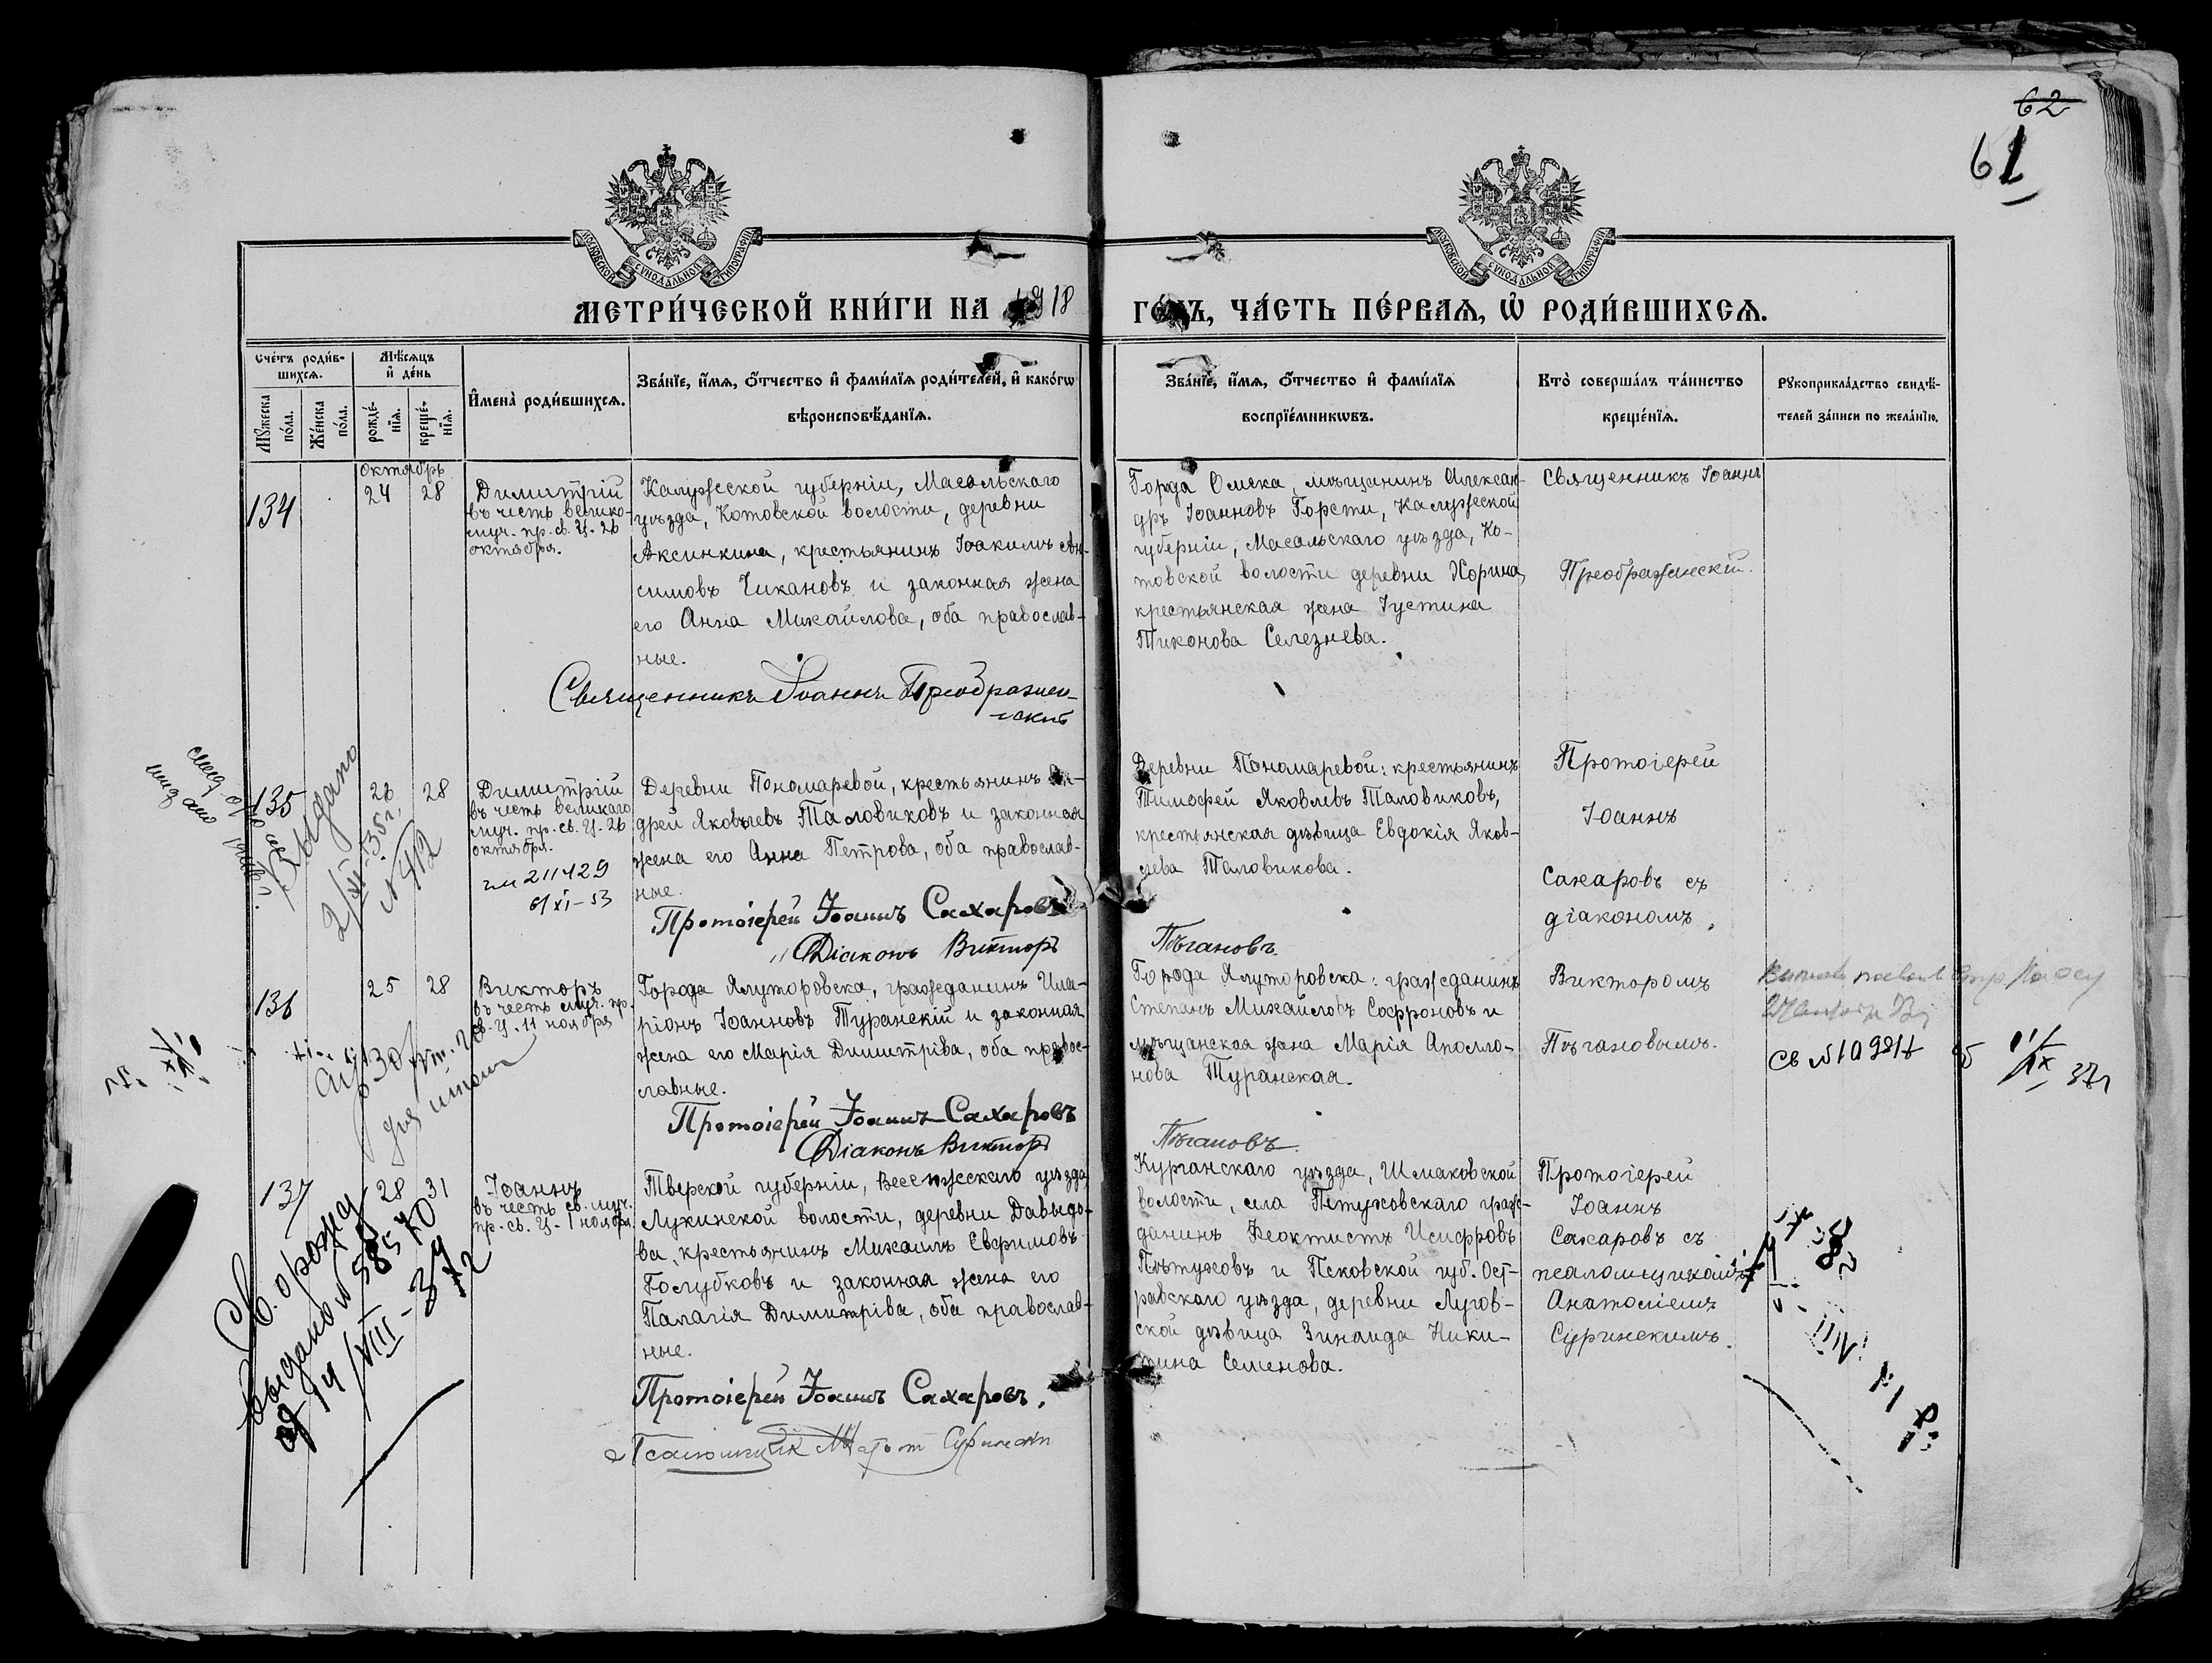 62
61
МОСКОВСКОЙ СѴНОДАЛЬНОЙ ТИПОГРАФІИ
МОСКОВСКОЙ СѴНОДАЛЬНОЙ ТИПОГРАФІИ
МЕТРИ́ЧЕСКОЙ КНИ́ГИ НА 1918
ГО́ДЪ, ЧА́СТЬ ПЕ́РВАѦ, Ѡ҆ РОДИ́ВШИХСѦ.
Счетъ роди́в-
шихсѧ.
Мѣсѧцъ
и҆ де́нь
Мꙋ́жеска
по́ла.
Же́нска
по́ла.
рожде́-
нїѧ.
креще́-
нїѧ.
И҆мена̀ роди́вшихсѧ.
Зва́нїе, и҆́мѧ, ѻ҆́тчество и҆ фами́лїѧ роди́телей, и҆ како́гѡ
вѣроисповѣ́данїѧ.
Зва́нїе, и҆́мѧ, ѻ҆́тчество и҆ фами́лїѧ
воспрїе́мникѡвъ.
Кто̀ соверша́лъ та́инство
креще́нїѧ.
Рꙋкоприкла́дство свидѣ́-
телей за́писи по жела́нїю.
октябрь
134
24
28
Димитрій
въ честь велико-
муч. пр. св. Ц. 26
октября.
Калужской губерніи, Масальскаго
уѣзда, Котовской волости, деревни
Аксинкина, крестьянинъ Іоакимъ Ан-
симовъ Чикановъ и законная жена
его Анна Михайлова, оба православ-
ные.
Священникъ Іоаннъ Преображен-
скій
Города Омска, мѣщанинъ Алексан-
дръ Іоанновъ Горсти, Калужской
губерніи, Масальскаго уѣзда, Ко-
товской волости деревни Хорина,
крестьянская жена Іустина
Тихонова Селезнева.
Священникъ Іоаннъ
Преображенскій.
135
Выдано
2/XI-35 г.
N 412
26
28
Димитрій
въ честь великаго
муч. пр. св. Ц. 26
октября.
211429
XI-53
Деревни Пономаревой, крестьянинъ Ан-
дрей Яковлевъ Таловиковъ и законная
жена его Анна Петрова, оба православ-
ные.
Протоіерей Іоаннъ Сахаровъ
Діаконъ Викторъ
Пѣгановъ
Деревни Пономаревой: крестьянинъ
Тимофей Яковлевъ Таловиковъ,
крестьянская дѣвица Евдокія Яков-
лева Таловикова.
Протоіерей
Іоаннъ
Сахаровъ съ
діакономъ
136
25
28
Викторъ
въ честь муч. пр.
св. Ц. 11 ноября
Города Ялуторовска, гражданинъ Ила-
ріонъ Іоанновъ Туранскій и законная
жена его Марія Димитріева, оба правос-
лавные.
Протоіерей Іоаннъ Сахаровъ
Діаконъ Викторъ
Пѣгановъ
Города Ялуторовска: гражданинъ
Степанъ Михайловъ Софроновъ и
мѣщанская жена Марія Аполло-
нова Туранская.
Викторомъ
Пѣгановымъ.
137
28
31
Іоаннъ
въ честь св. муч.
пр. св. Ц. 1 ноября
Тверской губерніи, Весьегжскаго уѣзда
Лукинской волости, деревни Давыдо-
ва, крестьянинъ Михаилъ Евфимовъ
Голубковъ и законная жена его
Палагія Димитріева, оба православ-
ные.
Протоіерей Іоаннъ Сахаровъ.
Курганскаго уѣзда, Шмаковской
волости, села Пѣтуховскаго граж-
данинъ Феоктистъ Исифровъ
Пѣтуховъ и Псковской губ. Ост-
ровскаго уѣзда, деревни Лугов-
ской дѣвица Зинаида Ники-
тина Семенова.
Протоіерей
Іоаннъ
Сахаровъ съ
псаломщикомъ
Анатоліемъ
Суринскимъ.
Св. о рожд
выдано N 58570
от 14/VIII-37 г